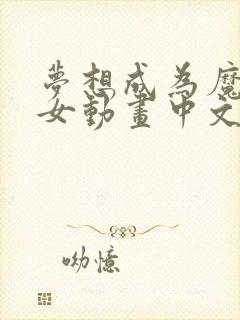 夢想成為魔
女動畫中文
呦憶